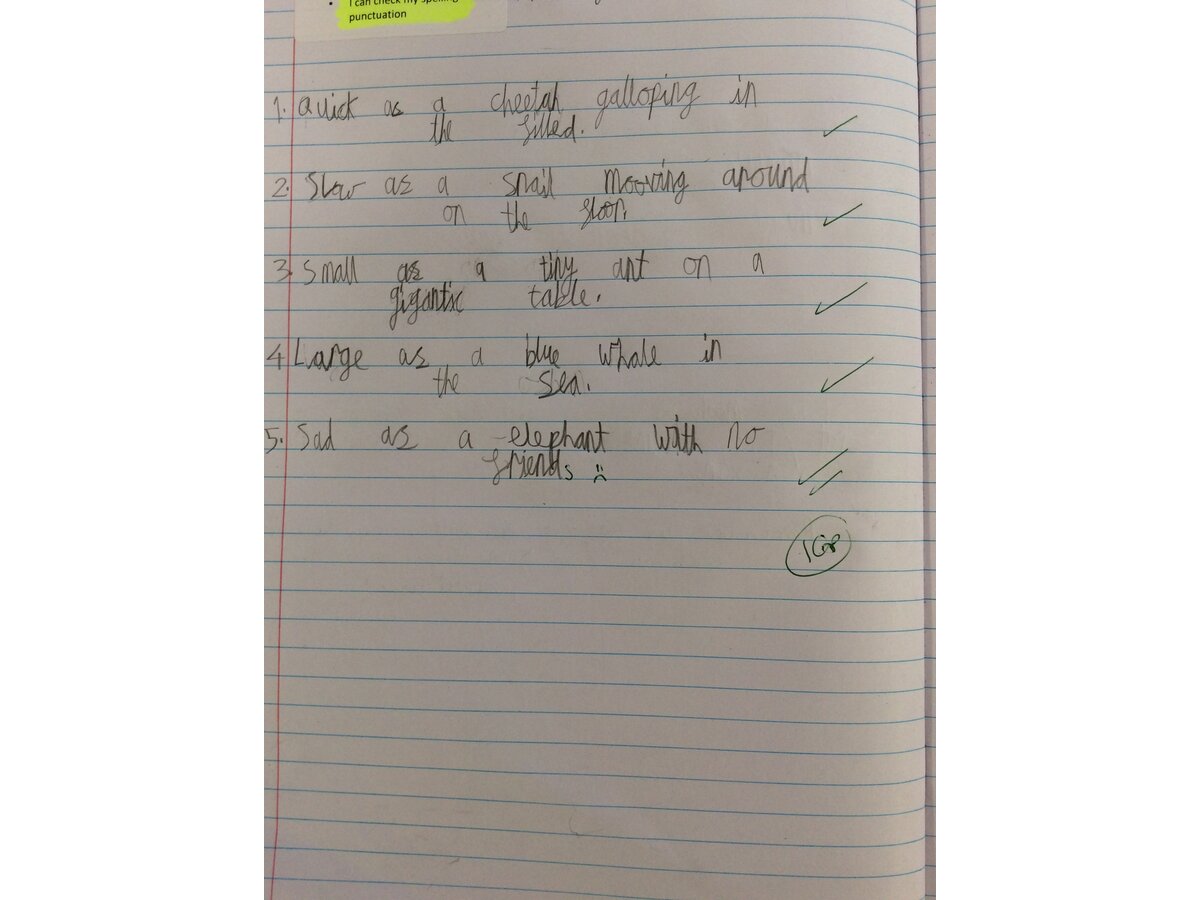 • I can check my spelling
punctuation
1. Quick as a cheetah galloping in
the filled.
2. Slow as a snail mooving around
on the floor.
3. Small as a tiny ant on a
gigantic table.
4 Large as a blue whale in
the sea.
5. Sad as a elephant with no
friends